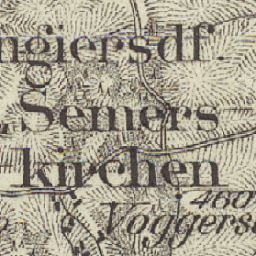 ngiersdf.
Semers
kirchen
460
Voggers